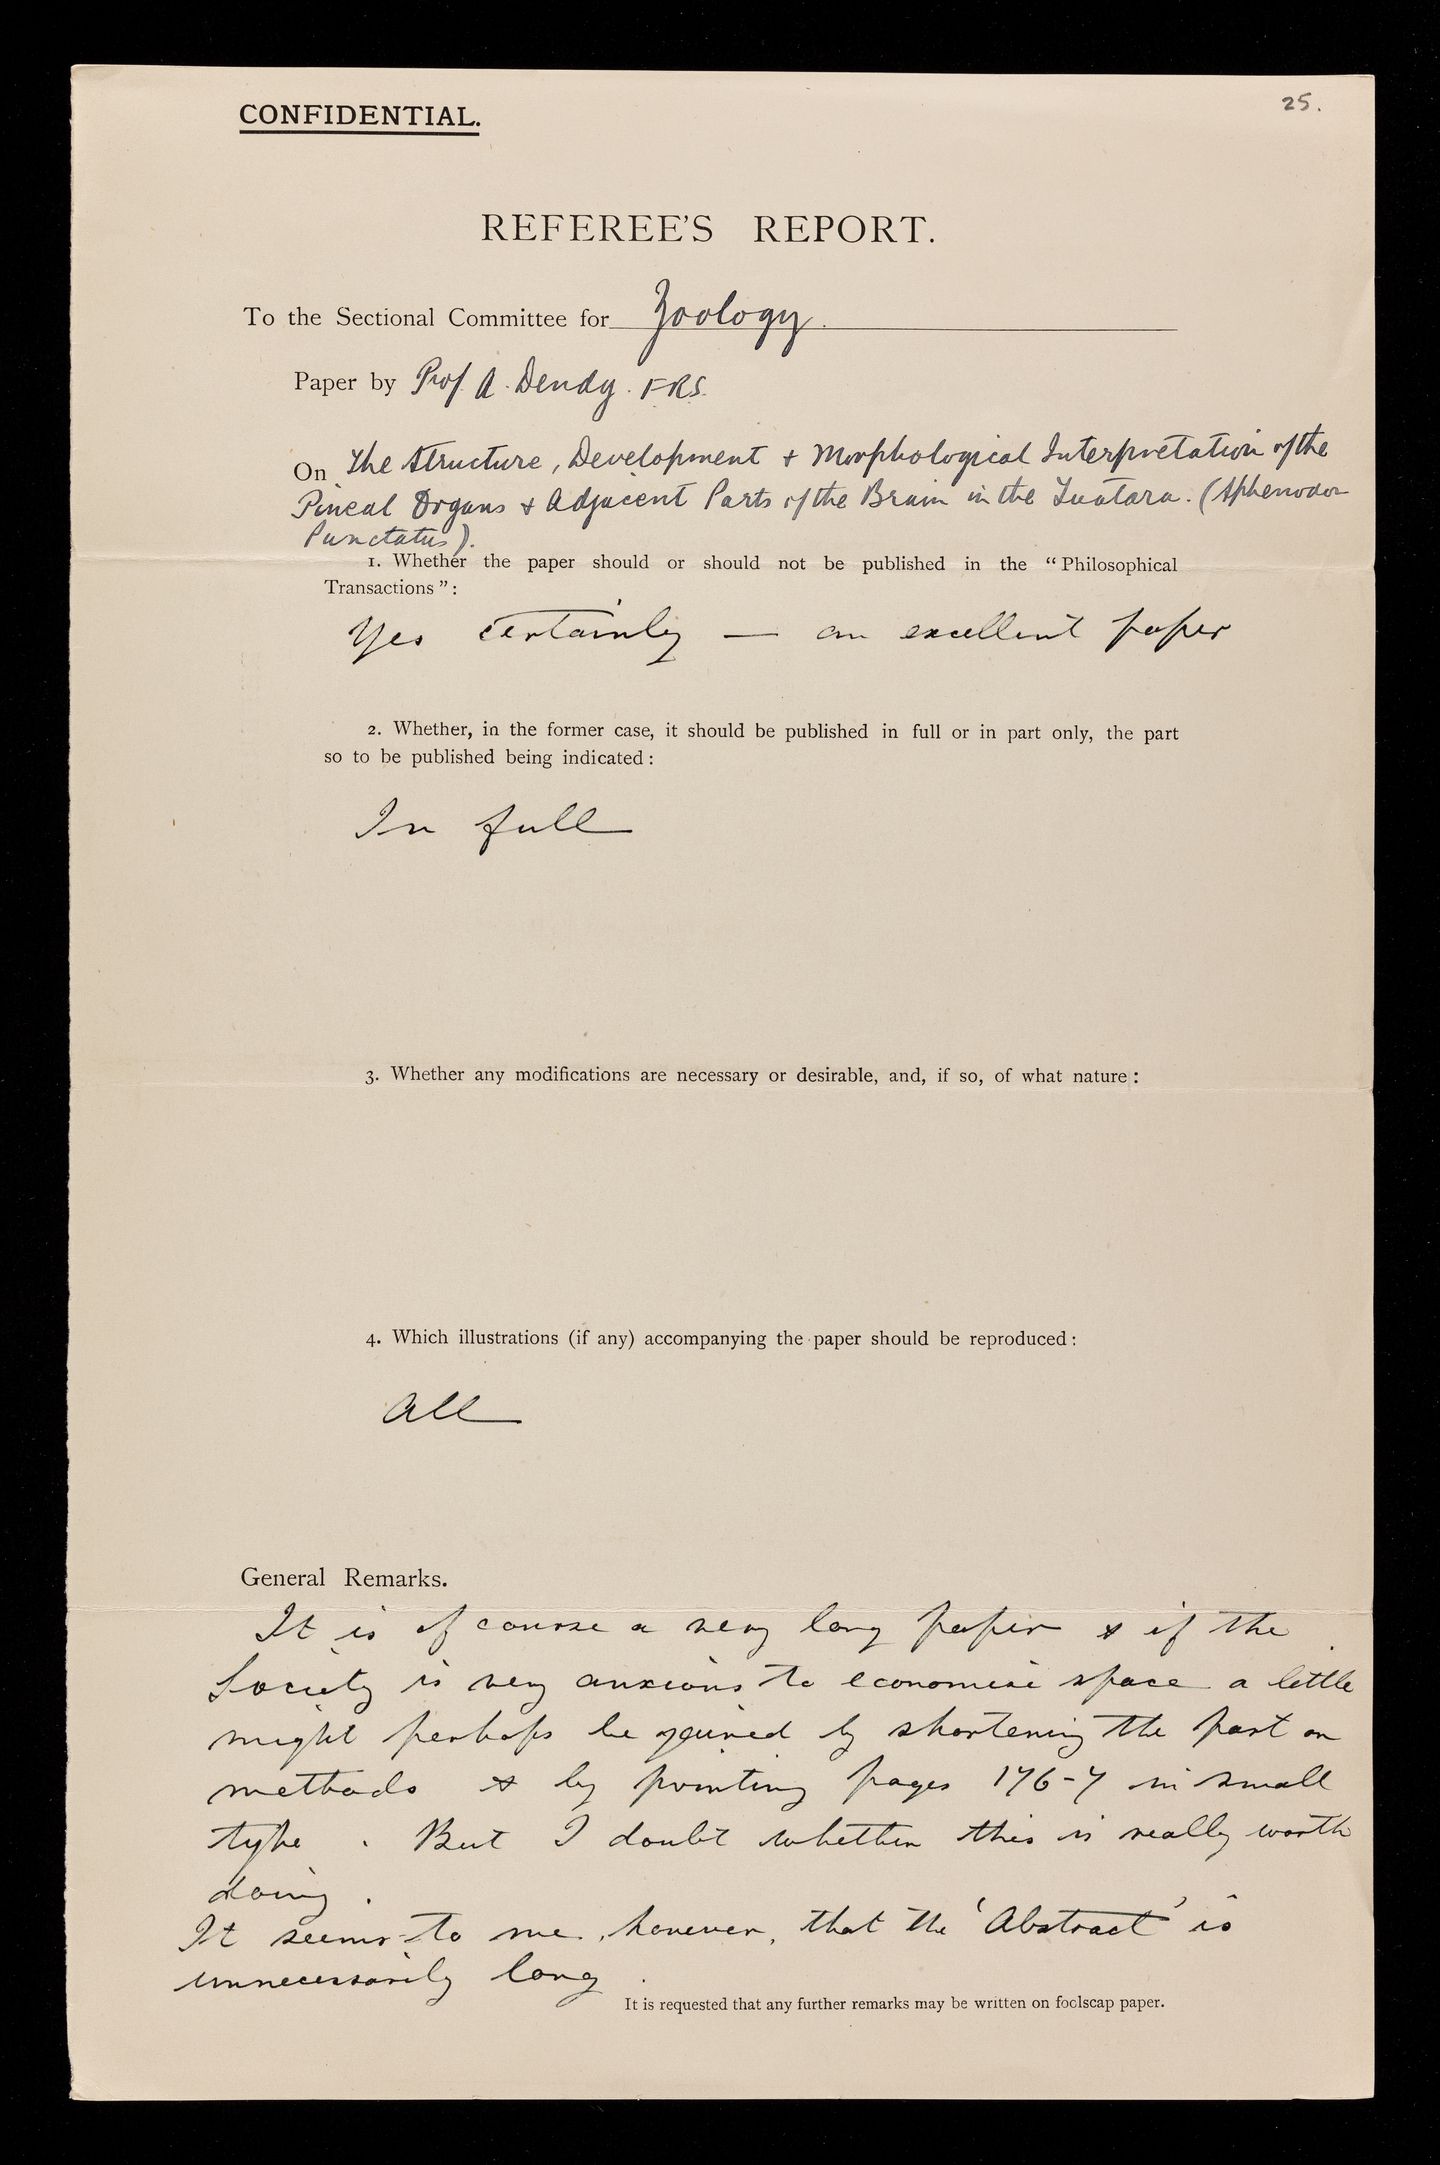 CONFIDENTIAL.
25.
REFEREE'S REPORT.
To the Sectional Committee for Zoology.
Paper by Prof A. Dendy. FRS.
On The Structure, Development & Morphological Interpretation of the
Pineal Organs & Adjacent Parts of the Brain in the Tuatara. (Sphenodon
Punctatus).
1. Whether the paper should or should not be published in the "Philosophical
Transactions":
Yes certainly — an excellent paper
2. Whether, in the former case, it should be published in full or in part only, the part
so to be published being indicated:
In full
3. Whether any modifications are necessary or desirable, and, if so, of what nature:
4. Which illustrations (if any) accompanying the paper should be reproduced:
All
General Remarks.
It is of course a very long paper & if the
Society is very anxious to economise space a little
might perhaps be gained by shortening the part on
methods & by printing pages 176-7 in small
type. But I doubt whether this is really worth
doing.
It seems to me, however, that the 'Abstract' is
unnecessarily long.
It is requested that any further remarks may be written on foolscap paper.